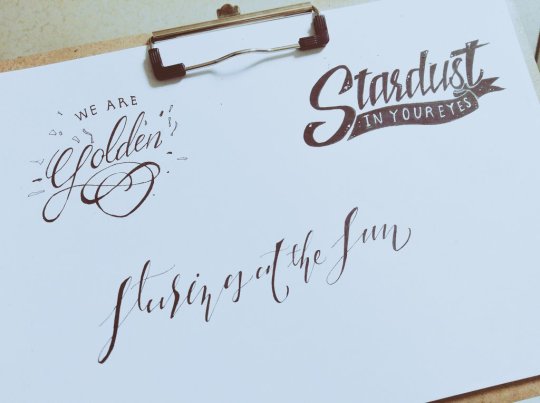 WE ARE
Golden
Stardust
IN YOUR EYES
Staring at the Sun